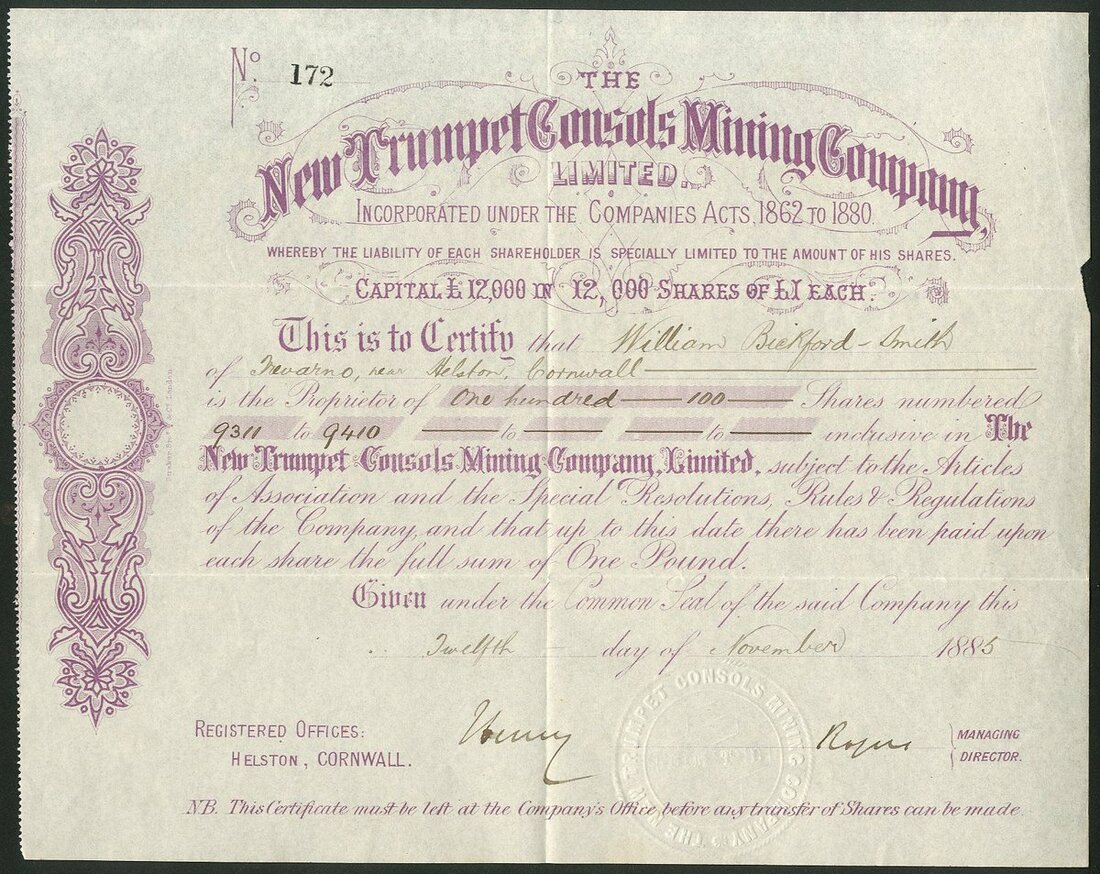 No. 172
THE
New Trumpet Consols Mining Company,
LIMITED.
INCORPORATED UNDER THE COMPANIES ACTS, 1862 TO 1880.
WHEREBY THE LIABILITY OF EACH SHAREHOLDER IS SPECIALLY LIMITED TO THE AMOUNT OF HIS SHARES.
CAPITAL £12,000 IN 12,000 SHARES OF £1 EACH.
This is to Certify that William Bickford-Smith
of Trevarno, near Helston, Cornwall
is the Proprietor of One hundred — 100 — Shares numbered
9311 to 9410 — to — — to — inclusive in The
New Trumpet Consols Mining Company, Limited, subject to the Articles
of Association and the Special Resolutions, Rules & Regulations
of the Company, and that up to this date there has been paid upon
each share the full sum of One Pound.
Given under the Common Seal of the said Company this
Twelfth day of November 1885
REGISTERED OFFICES:
HELSTON, CORNWALL.
Henry Rogers
MANAGING
DIRECTOR.
THE NEW TRUMPET CONSOLS MINING COMPANY
NB. This Certificate must be left at the Company's Office before any transfer of Shares can be made